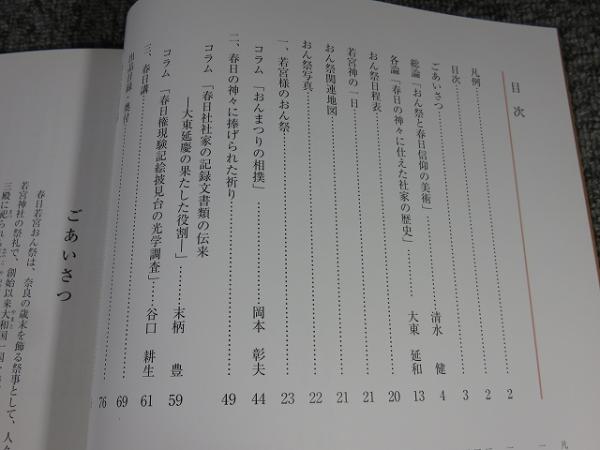 目次
凡例……2
目次……2
ごあいさつ……3
総論「おん祭と春日信仰の美術」……清水 健 4
各論「春日の神々に仕えた社家の歴史」……大東 延和 13
おん祭日程表……20
若宮神の一日……21
おん祭関連地図……21
おん祭写真……22
一、若宮様のおん祭……23
コラム「おんまつりの相撲」……岡本 彰夫 44
二、春日の神々に捧げられた祈り……49
コラム「春日社社家の記録文書類の伝来
―大東延慶の果たした役割―」……末柄 豊 59
コラム「春日権現験記絵披見台の光学調査」……谷口 耕生 61
三、春日講……69
出品目録・奥付……76
ごあいさつ
春日若宮おん祭は、奈良の歳末を飾る祭事として、人々
若宮神社の祭礼で、創始以来大和国一国
三殿に祀られ